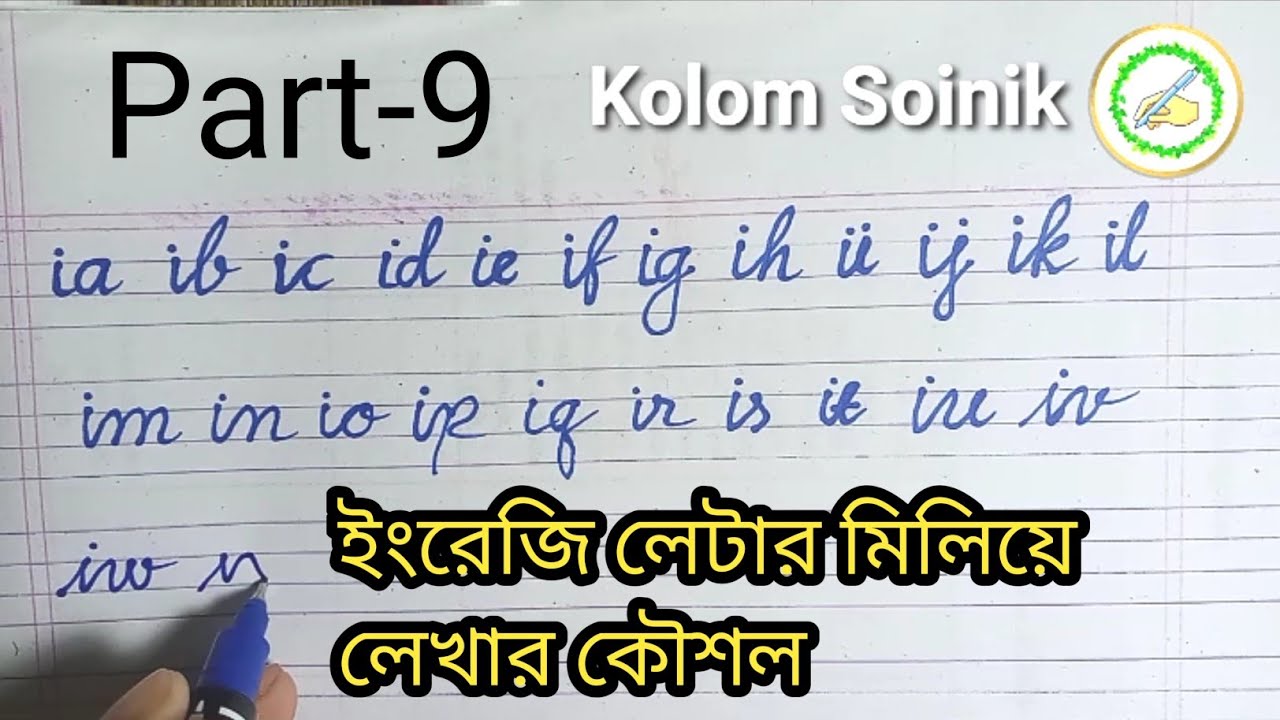 Part-9 Kolom Soinik
ia ib ic id ie if ig ih ii ij ik il
im in io ip iq ir is it iu iv
iw
ইংরেজি লেটার মিলিয়ে
লেখার কৌশল